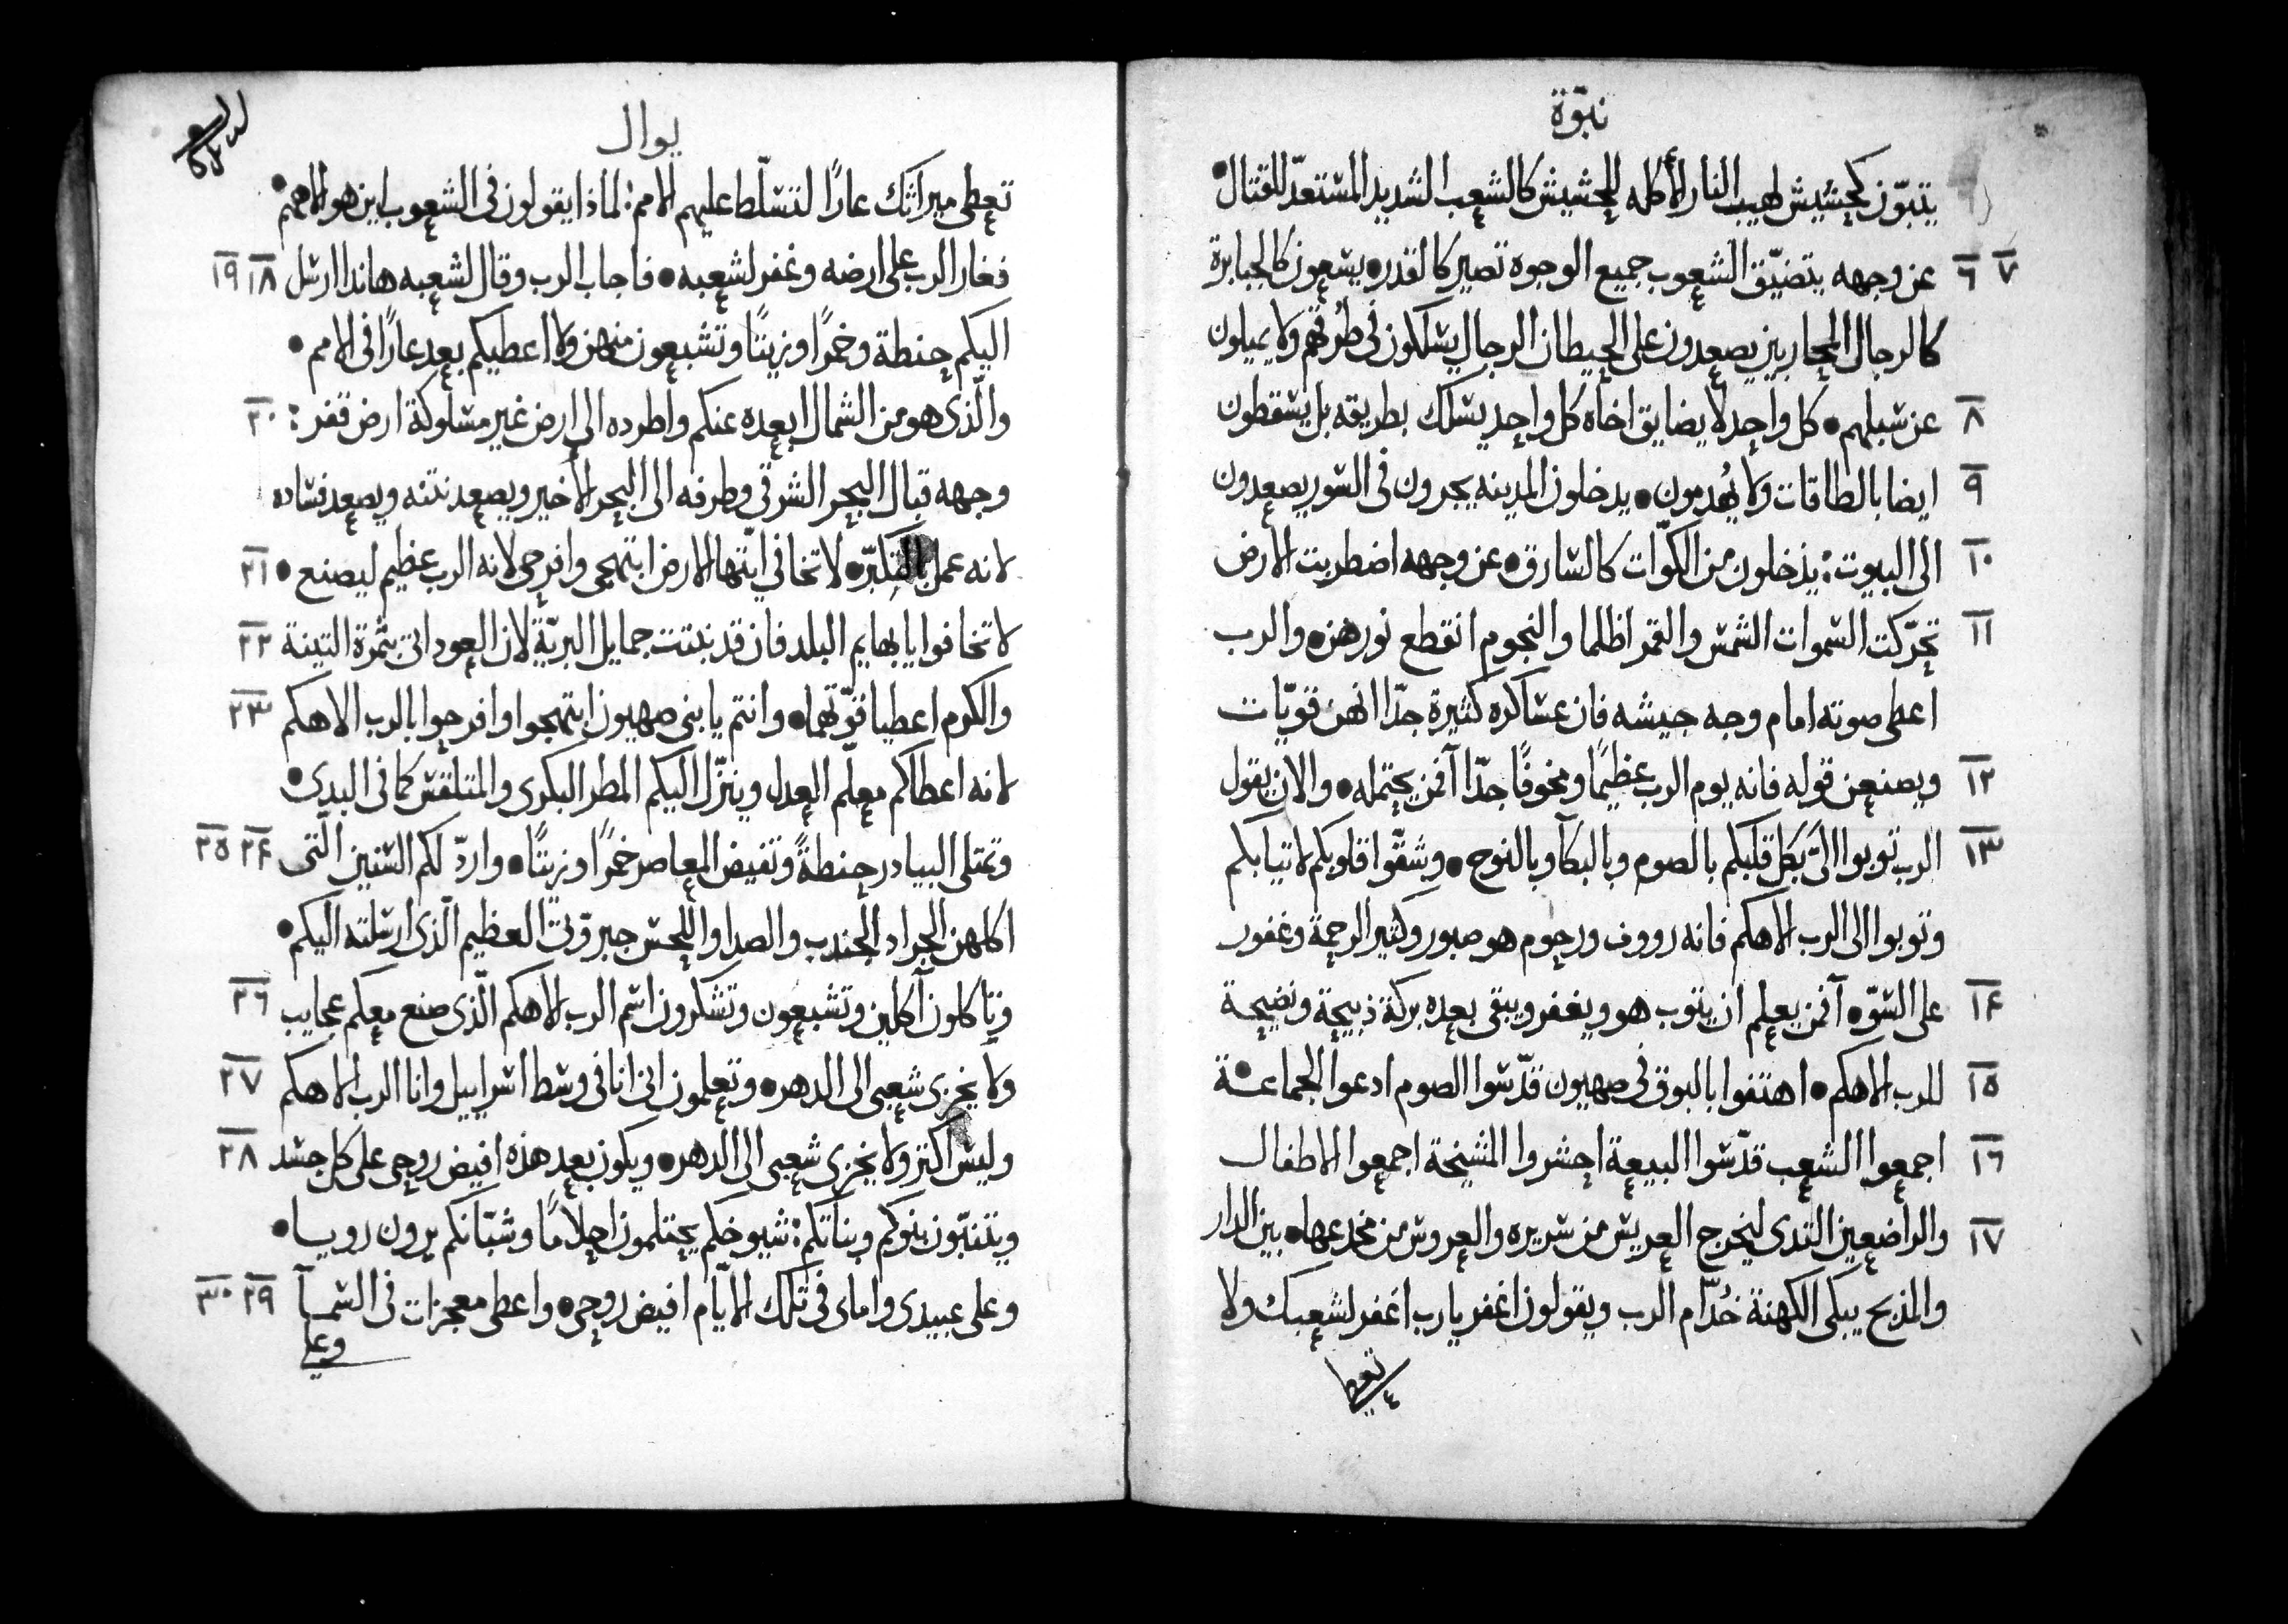 نبوّة
يتبوّن كحشيش لهيب النار الأكله للحشيش كالشعب الشديد المستعدّ للقتال •
٦ ٧ عن وجهه يتضيّق الشعوب جميع الوجوه تصير كالقدر • يسعون كالجبابرة
كالرجال المحاربين يصعدون على الحيطان الرجال يسلكون في طرقهم ولا يميلون
٨ عن سبلهم • كل واحد لا يضايق اخاه كل واحد يسلك بطريقه بل يسقطون
٩ ايضا بالطاقات ولا يُهدمون • يدخلون المدينه يجرون في السور يصعدون
١٠ الى البيوت : يدخلون من الكوّات كالسارق • عن وجهه اضطربت الارض
١١ تحرّكت السموات الشمس والقمر اظلما والنجوم انقطع نورهن • والرب
اعطى صوته امام وجه جيشه فان عساكره كثيرة جدّا انهن قويّات
١٢ ويصنعن قوله فانه يوم الرب عظيمًا ومخوفًا جدّا آفمن يحتمله • والان يقول
١٣ الرب توبوا اليَّ بكل قلبكم بالصوم وبالبكآ وبالنوح • وشقّوا قلوبكم لا تيابكم
وتوبوا الى الرب الاهكم فانه رووف ورحوم هو صبور وكثير الرحمة وغفور
١٤ على السوّ • آفمن يعلم ان يتوب هو ويغفر ويبقى بعده بركة ذبيحة ونضيحة
١٥ للرب الاهكم • اهتفوا بالبوق في صهيون قدّسوا الصوم ادعوا الجماعة •
١٦ اجمعوا الشعب قدّسوا البيعة احشروا المشيخة اجمعوا الاطفال
١٧ والراضعين الثدى ليخرج العريس من سريره والعروس من مخدعها • بين الدار
والمذبح يبكى الكهنة خُدّام الرب ويقولون اغفر يارب اغفر لشعبك ولا
تعطى
يوال
تعطى ميراثك عارًا لتسلّط عليهم الامم : لماذا يقولون في الشعوب اين هو الاههم •
فغار الرب على ارضه وغفر لشعبه • فاجاب الرب وقال لشعبه هانذا ارسل ١٨ ١٩
اليكم حنطة وخمرًا وزيتًا وتشبعون منهن ولا اعطيكم بعد عارًا في الامم •
والّذى هو من الشمال ابعده عنكم واطرده الى ارض غير مسلوكة ارض قفر : ٢٠
وجهه قبال البحر الشرقى وطرفه الى البحر الأخير ويصعد نتنه ويصعد فساده
لانه عمل بالتكبّر • لا تخافي ايّتها الارض ابتهجى وافرحى لانه الرب عظيم ليصنع • ٢١
لا تخافوا يا بهايم البلد فان قد نبتت جمايل البريّة لان العود اتى بثمرة التينة ٢٢
والكرم اعطيا قوّتهما • وانتم يا بنى صهيون ابتهجوا وافرحوا بالرب الاهكم ٢٣
لانه اعطاكم معلّم العدل وينزّل اليكم المطر البكرى والمتلقّس كما في البدى •
وتمتلى البيادر حنطةً وتفيض المعاصر خمرًا وزيتًا • واردّ لكم السنين الّتى ٢٤ ٢٥
اكلهن الجراد الجندب والصدا واللحس جبروّتى العظيم الّذى ارسلته اليكم •
وتاكلون آكلين وتشبعون وتشكرون اسم الرب الاهكم الّذى صنع معكم عجايب ٢٦
ولا يخزى شعبى الى الدهر • وتعلمون انى انا في وسط اسراييل وانا الرب الاهكم ٢٧
وليس اكتر ولا يخزى شعبى الى الدهر • ويكون بعد هذه افيض روحى على كل جسد ٢٨
ويتنبّون بنوكم وبناتكم : شيوخكم يحتلمون احلامًا وشبّانكم يرون رويا •
وعلى عبيدى واماى في تلك الايّام افيض روحى • واعطى معجزات في السمآ ٢٩ ٣٠
وعلى